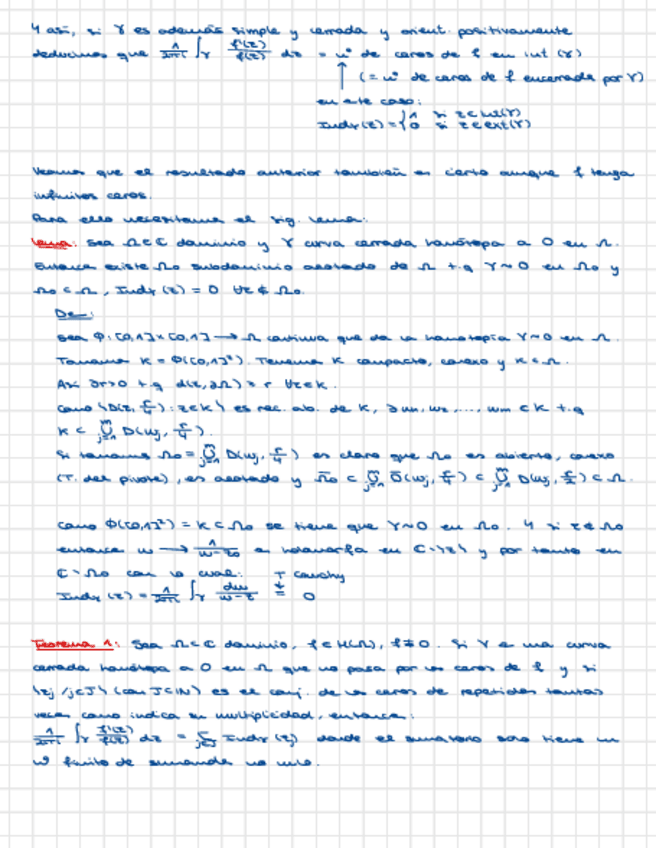 Y así, si γ es además simple y cerrada y orient. positivamente
deducimos que 1/2πi ∫γ f'(z)/f(z) dz = nº de ceros de f en int(γ)
(= nº de ceros de f encerrados por γ)
en este caso:
Indγ(z) = {1 si z∈int(γ) 0 si z∈ext(γ)
Veamos que el resultado anterior también es cierto aunque f tenga
infinitos ceros.
Para ello necesitamos el sig. lema:
Lema: Sea Ω⊂ℂ dominio y γ curva cerrada homótopa a 0 en Ω.
Entonces existe Ω₀ subdominio acotado de Ω t.q γ~0 en Ω₀ y
Ω₀ ⊂ Ω, Indγ(z) = 0 ∀z∉Ω₀.
De:
Sea φ: [0,1]×[0,1] → Ω continua que da la homotopía γ~0 en Ω.
Tomamos K = φ([0,1]²). Tenemos K compacto, conexo y K⊂Ω.
Así ∃r>0 t.q d(z,∂Ω) > r ∀z∈K.
Como {D(z, r/4) : z∈K} es rec. ab. de K, ∃ w₁, w₂, ..., wm ∈ K t.q
K ⊂ ⋃ⱼ₌₁ᵐ D(wj, r/4).
Si tomamos Ω₀ = ⋃ⱼ₌₁ᵐ D(wj, r/4) es claro que Ω₀ es abierto, conexo
(T. del pivote), es acotado y Ω̄₀ ⊂ ⋃ⱼ₌₁ᵐ D̄(wj, r/4) ⊂ ⋃ⱼ₌₁ᵐ D(wj, r/2) ⊂ Ω.
Como φ([0,1]²) = K ⊂ Ω₀ se tiene que γ~0 en Ω₀. Y si z∉Ω₀
entonces w → es holomorfa en ℂ\{z} y por tanto en
Ω₀ con lo cual: T Cauchy
Indγ(z) = 1/2πi ∫γ dw/w-z = 0
Teorema 1: Sea Ω⊂ℂ dominio, f∈H(Ω), f≢0. Si γ es una curva
cerrada homótopa a 0 en Ω que no pasa por los ceros de f y si
{zj / j∈J} (con J⊂ℕ) es el conj. de los ceros de repetidos tantas
veces como indica su multiplicidad, entonces:
1/2πi ∫γ f'(z)/f(z) dz = Σj∈J Indγ(zj) donde el sumatorio solo tiene un
nº finito de sumandos no nulo.